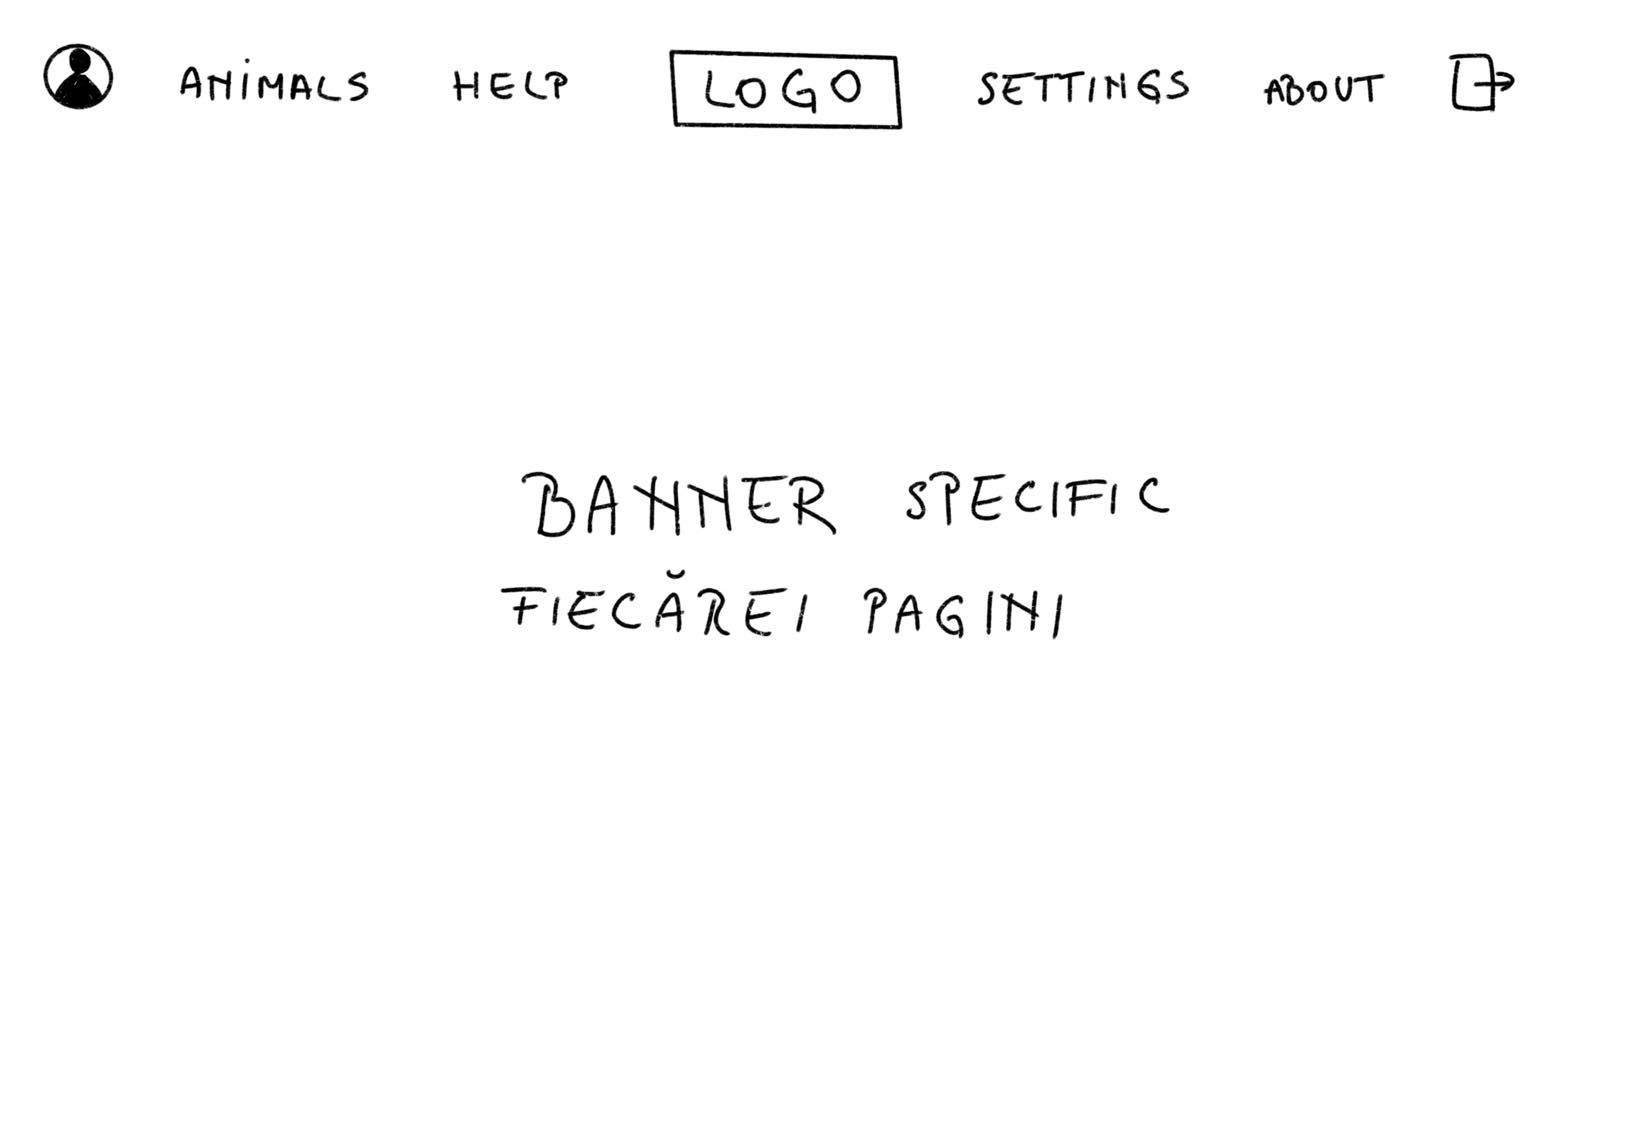 ANIMALS HELP LOGO SETTINGS ABOUT
BANNER SPECIFIC
FIECĂREI PAGINI